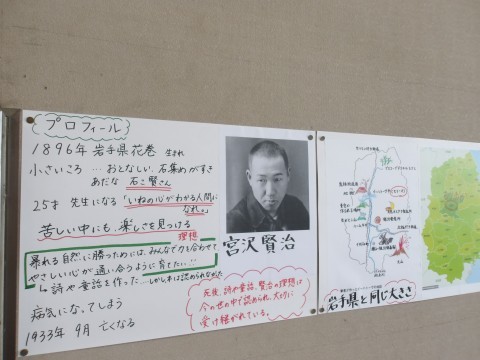 プロフィール
1896年 岩手県花巻 生まれ
小さいころ …おとなしい 石集めがすき
あだな 石こ賢さん
25才 先生になる 「いねの心がわかる人間になれ。」
苦しい中にも、楽しさを見つける
理想
暴れる自然に勝つためには、みんなで力を合わせて、
やさしい心が通い合うように育てたい…
→詩や童話を作った…しかし本は認められなかった
病気になってしまう
1933年 9月 亡くなる
宮沢賢治
死後、詩や童話、賢治の理想は
今の世の中で認められ、大切に
受け継がれている。
岩手県と同じ大きさ